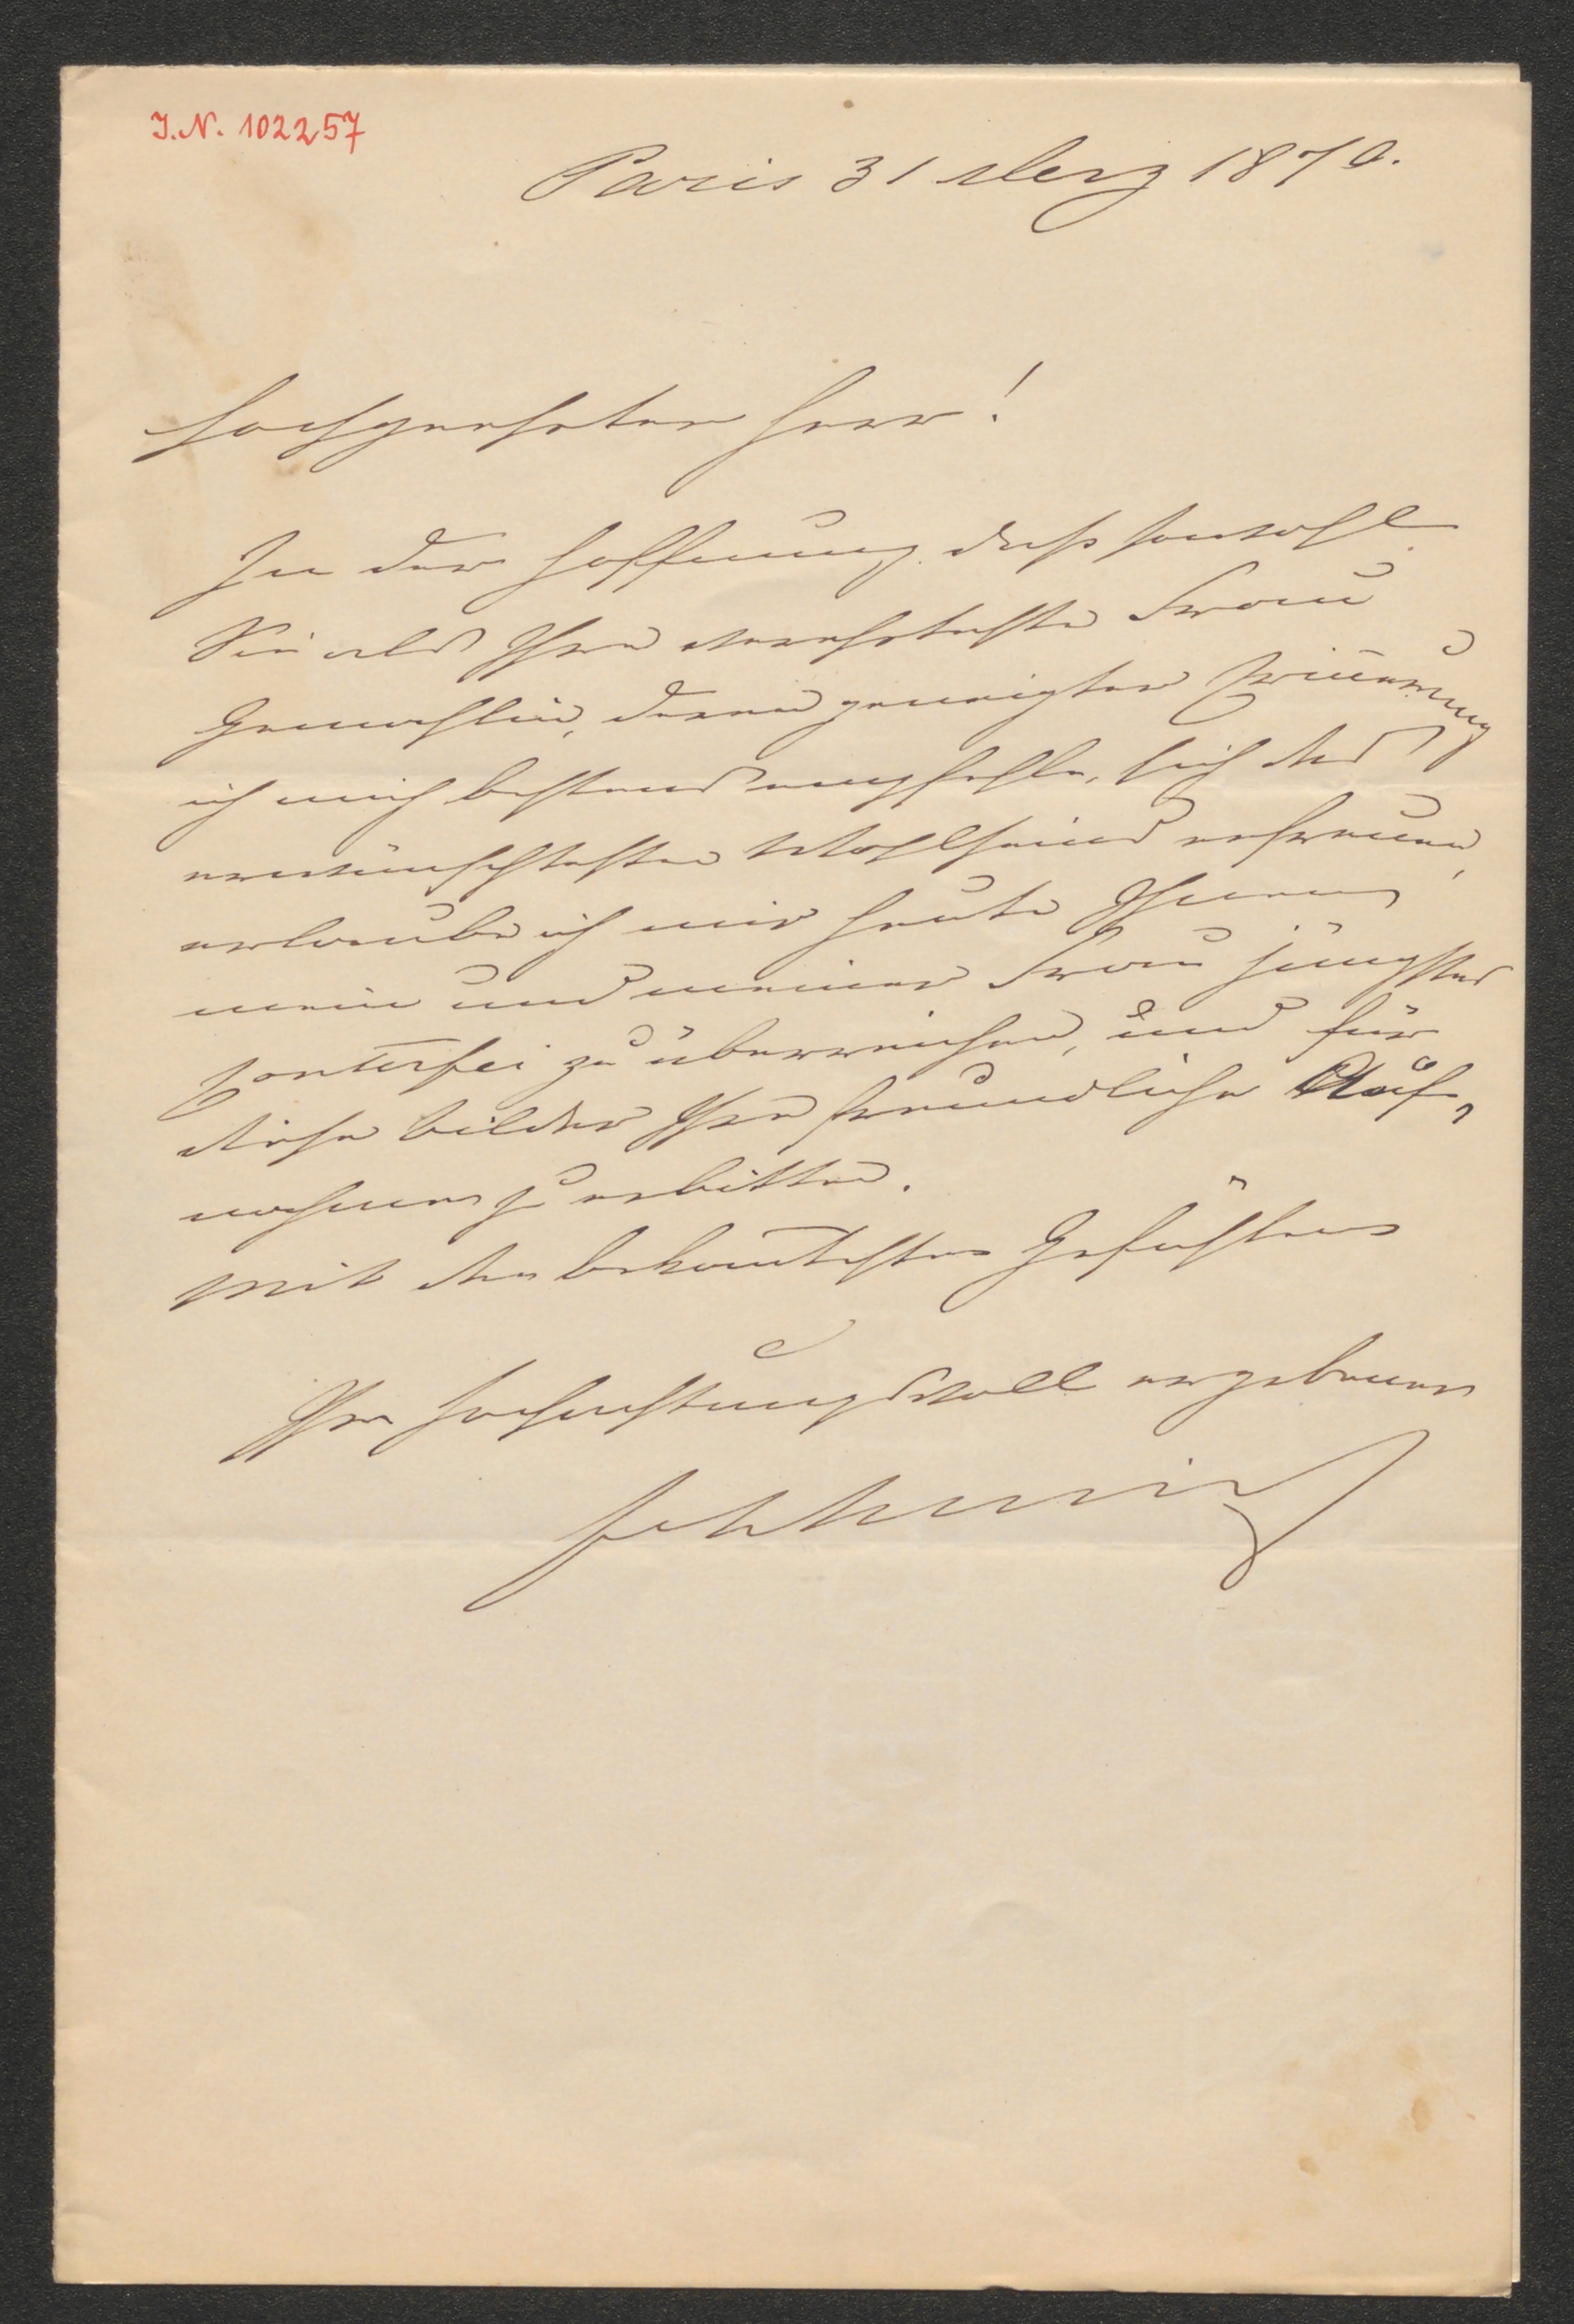 I.N. 102257
Paris 31 Merz 1870.
Hochgeehrter Herr!
In der Hoffnung dass sowohl
Sie als Ihre verehrteste Frau
Gemahlin, deren geneigter Erinnerung
ich mich bestens empfehle, sich des
erwünschtesten Wohlseins erfreuen,
erlaube ich mir heute Ihnen
mein und meiner Frau jüngstes
Conterfei zu überreichen, und für
diese bilder Ihre freundliche Auf,
nahme zu erbitten.
Mit den bekanntesten Gefühlen
Ihr hochachtungsvoll ergebener